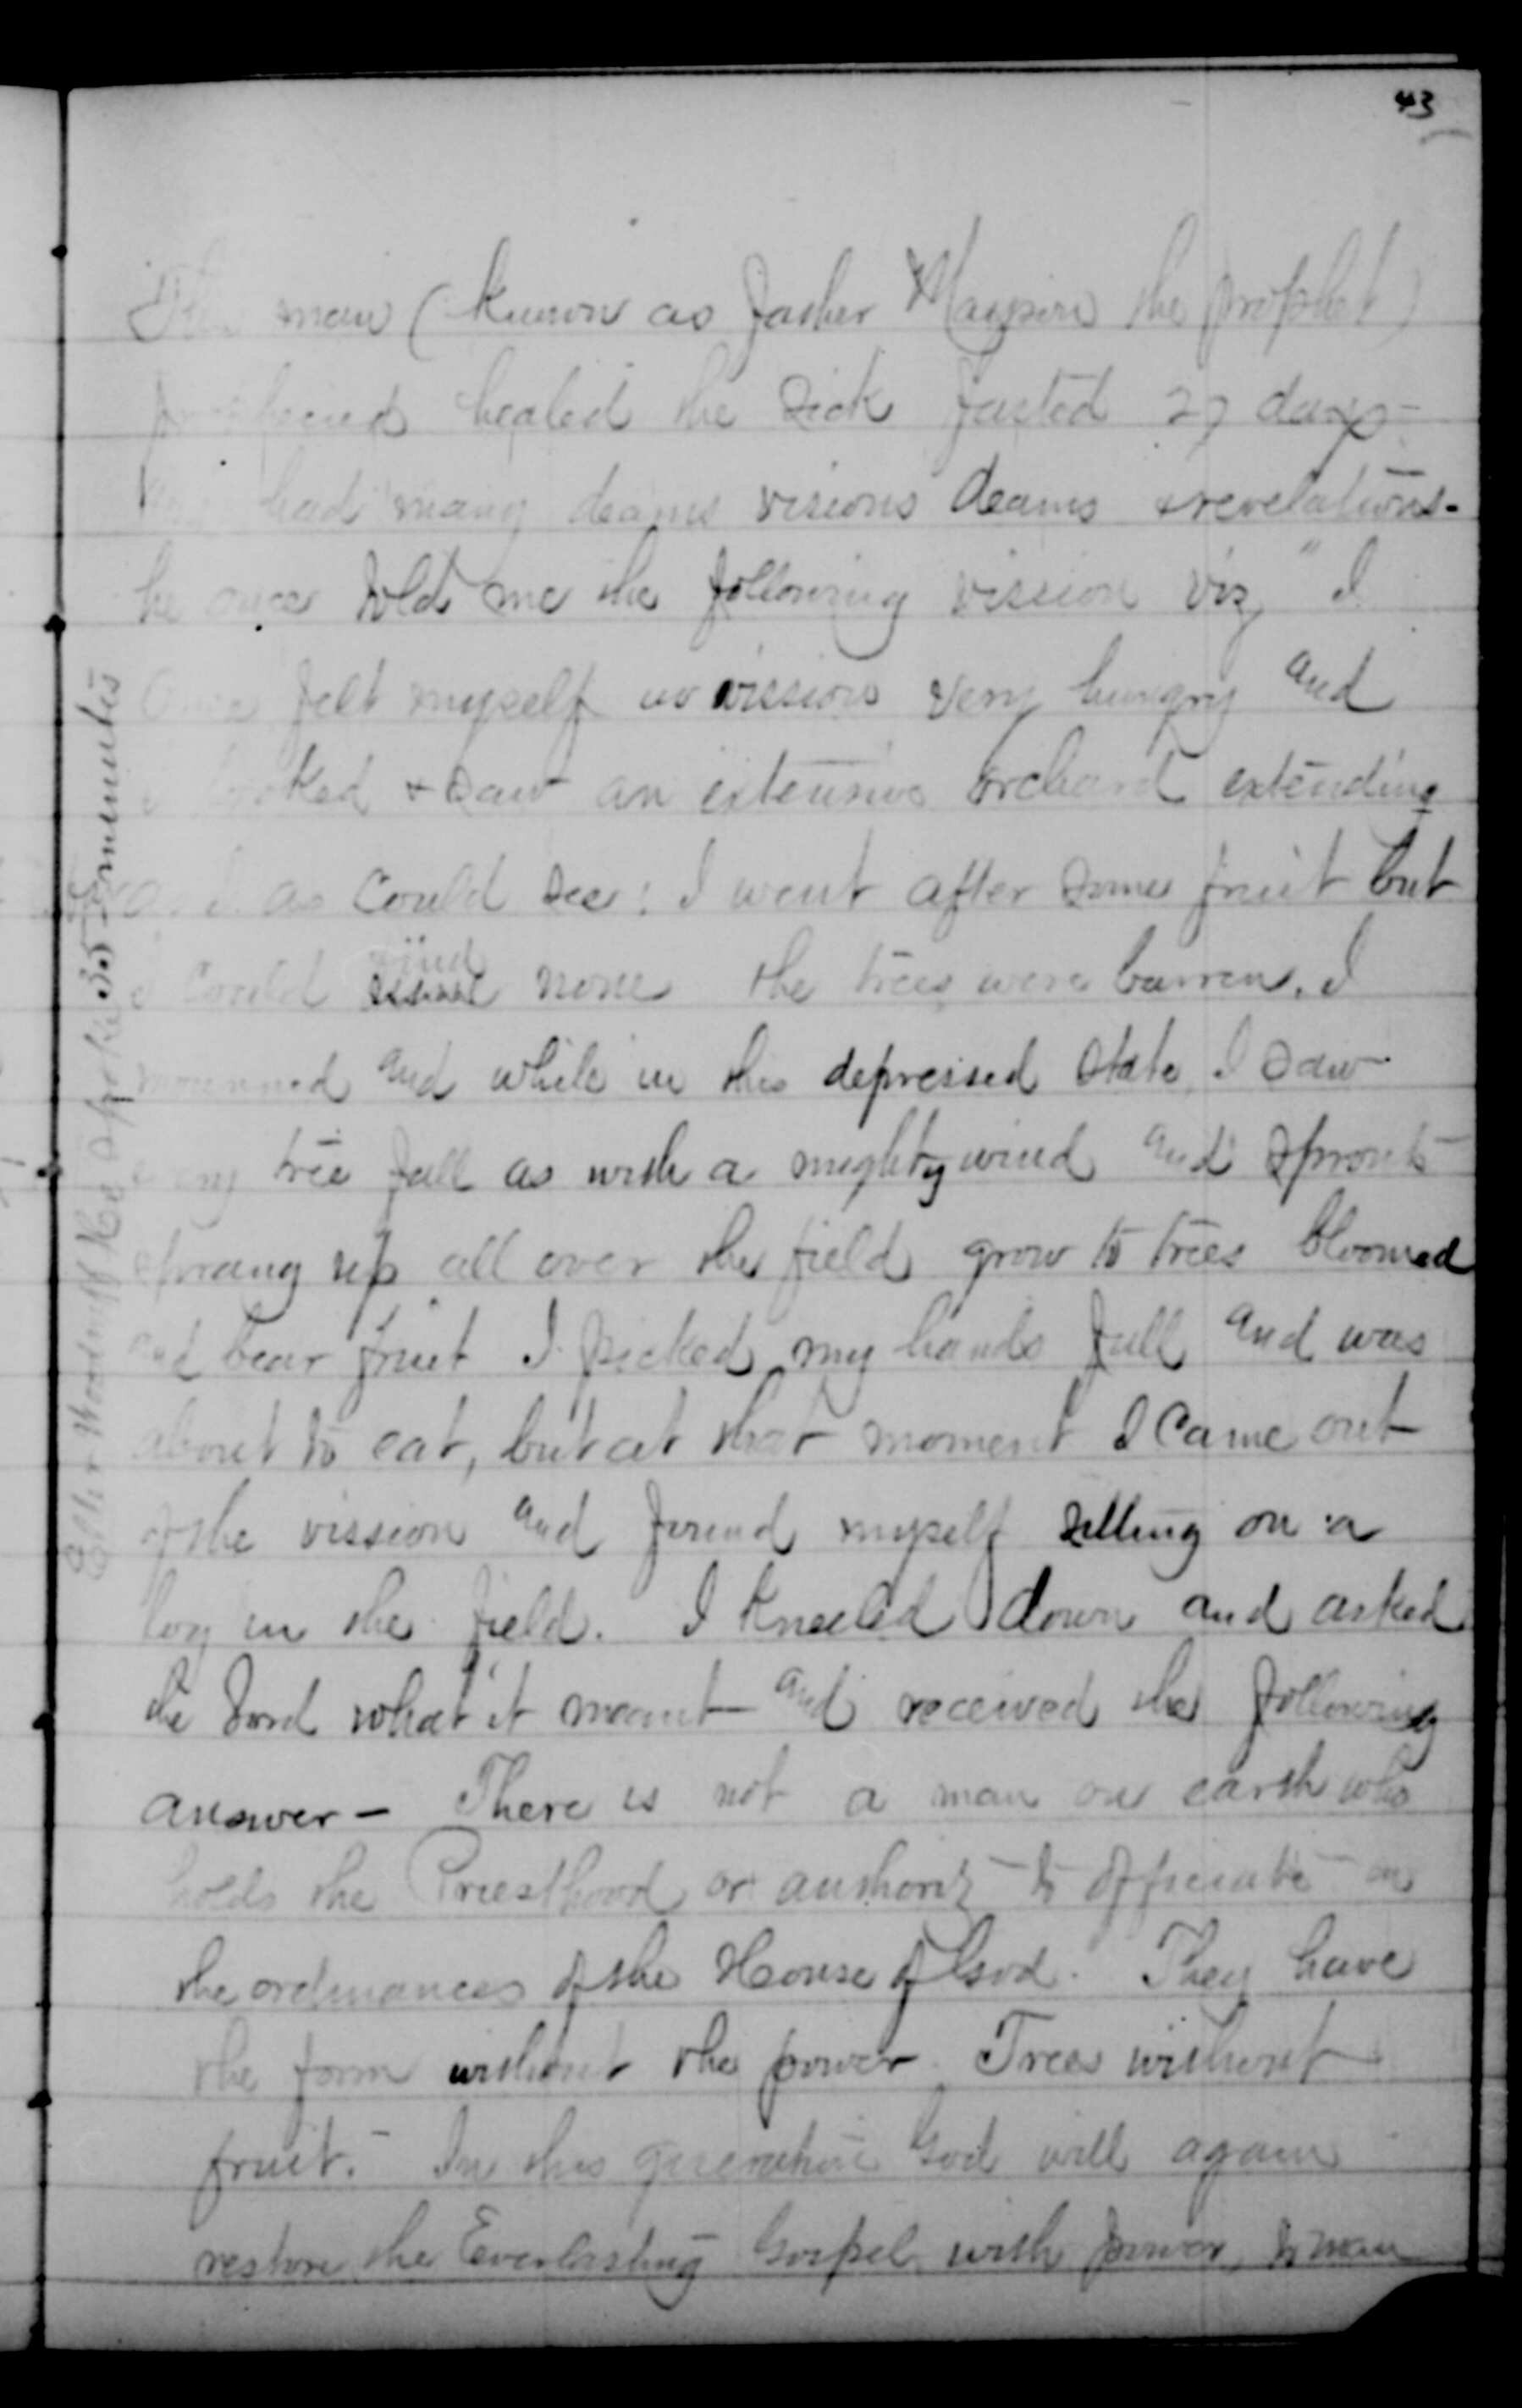 43
man (known as father Mayson the prophet)
healed the sick fasted 27 days-
had many deams visions deams & revelations-
he once told me the following vission viz "I
Once felt myself in vission very hungry and
looked & saw an extensive orchard extending
as could see: I went after some fruit but
I could find none the trees were barren. I
mourned and while in this depressed state I saw
every tree fall as with a mighty wind and sprouts
sprang up all over the field grow to trees bloomed
and bear fruit I picked my hands full and was
about to eat, but at that moment I came out
of the vission and found myself sitting on a
log in the field. I kneeled down and asked
the Lord what it meant and received the following
answer - There is not a man on earth who
holds the Priesthood or authority to officiate in
the ordinances of the House of God. They have
the form without the power Trees without
fruit. In this generation God will again
restore the Everlasting Gospel with power to man
Elder Woodruff He spoke 35 minutes